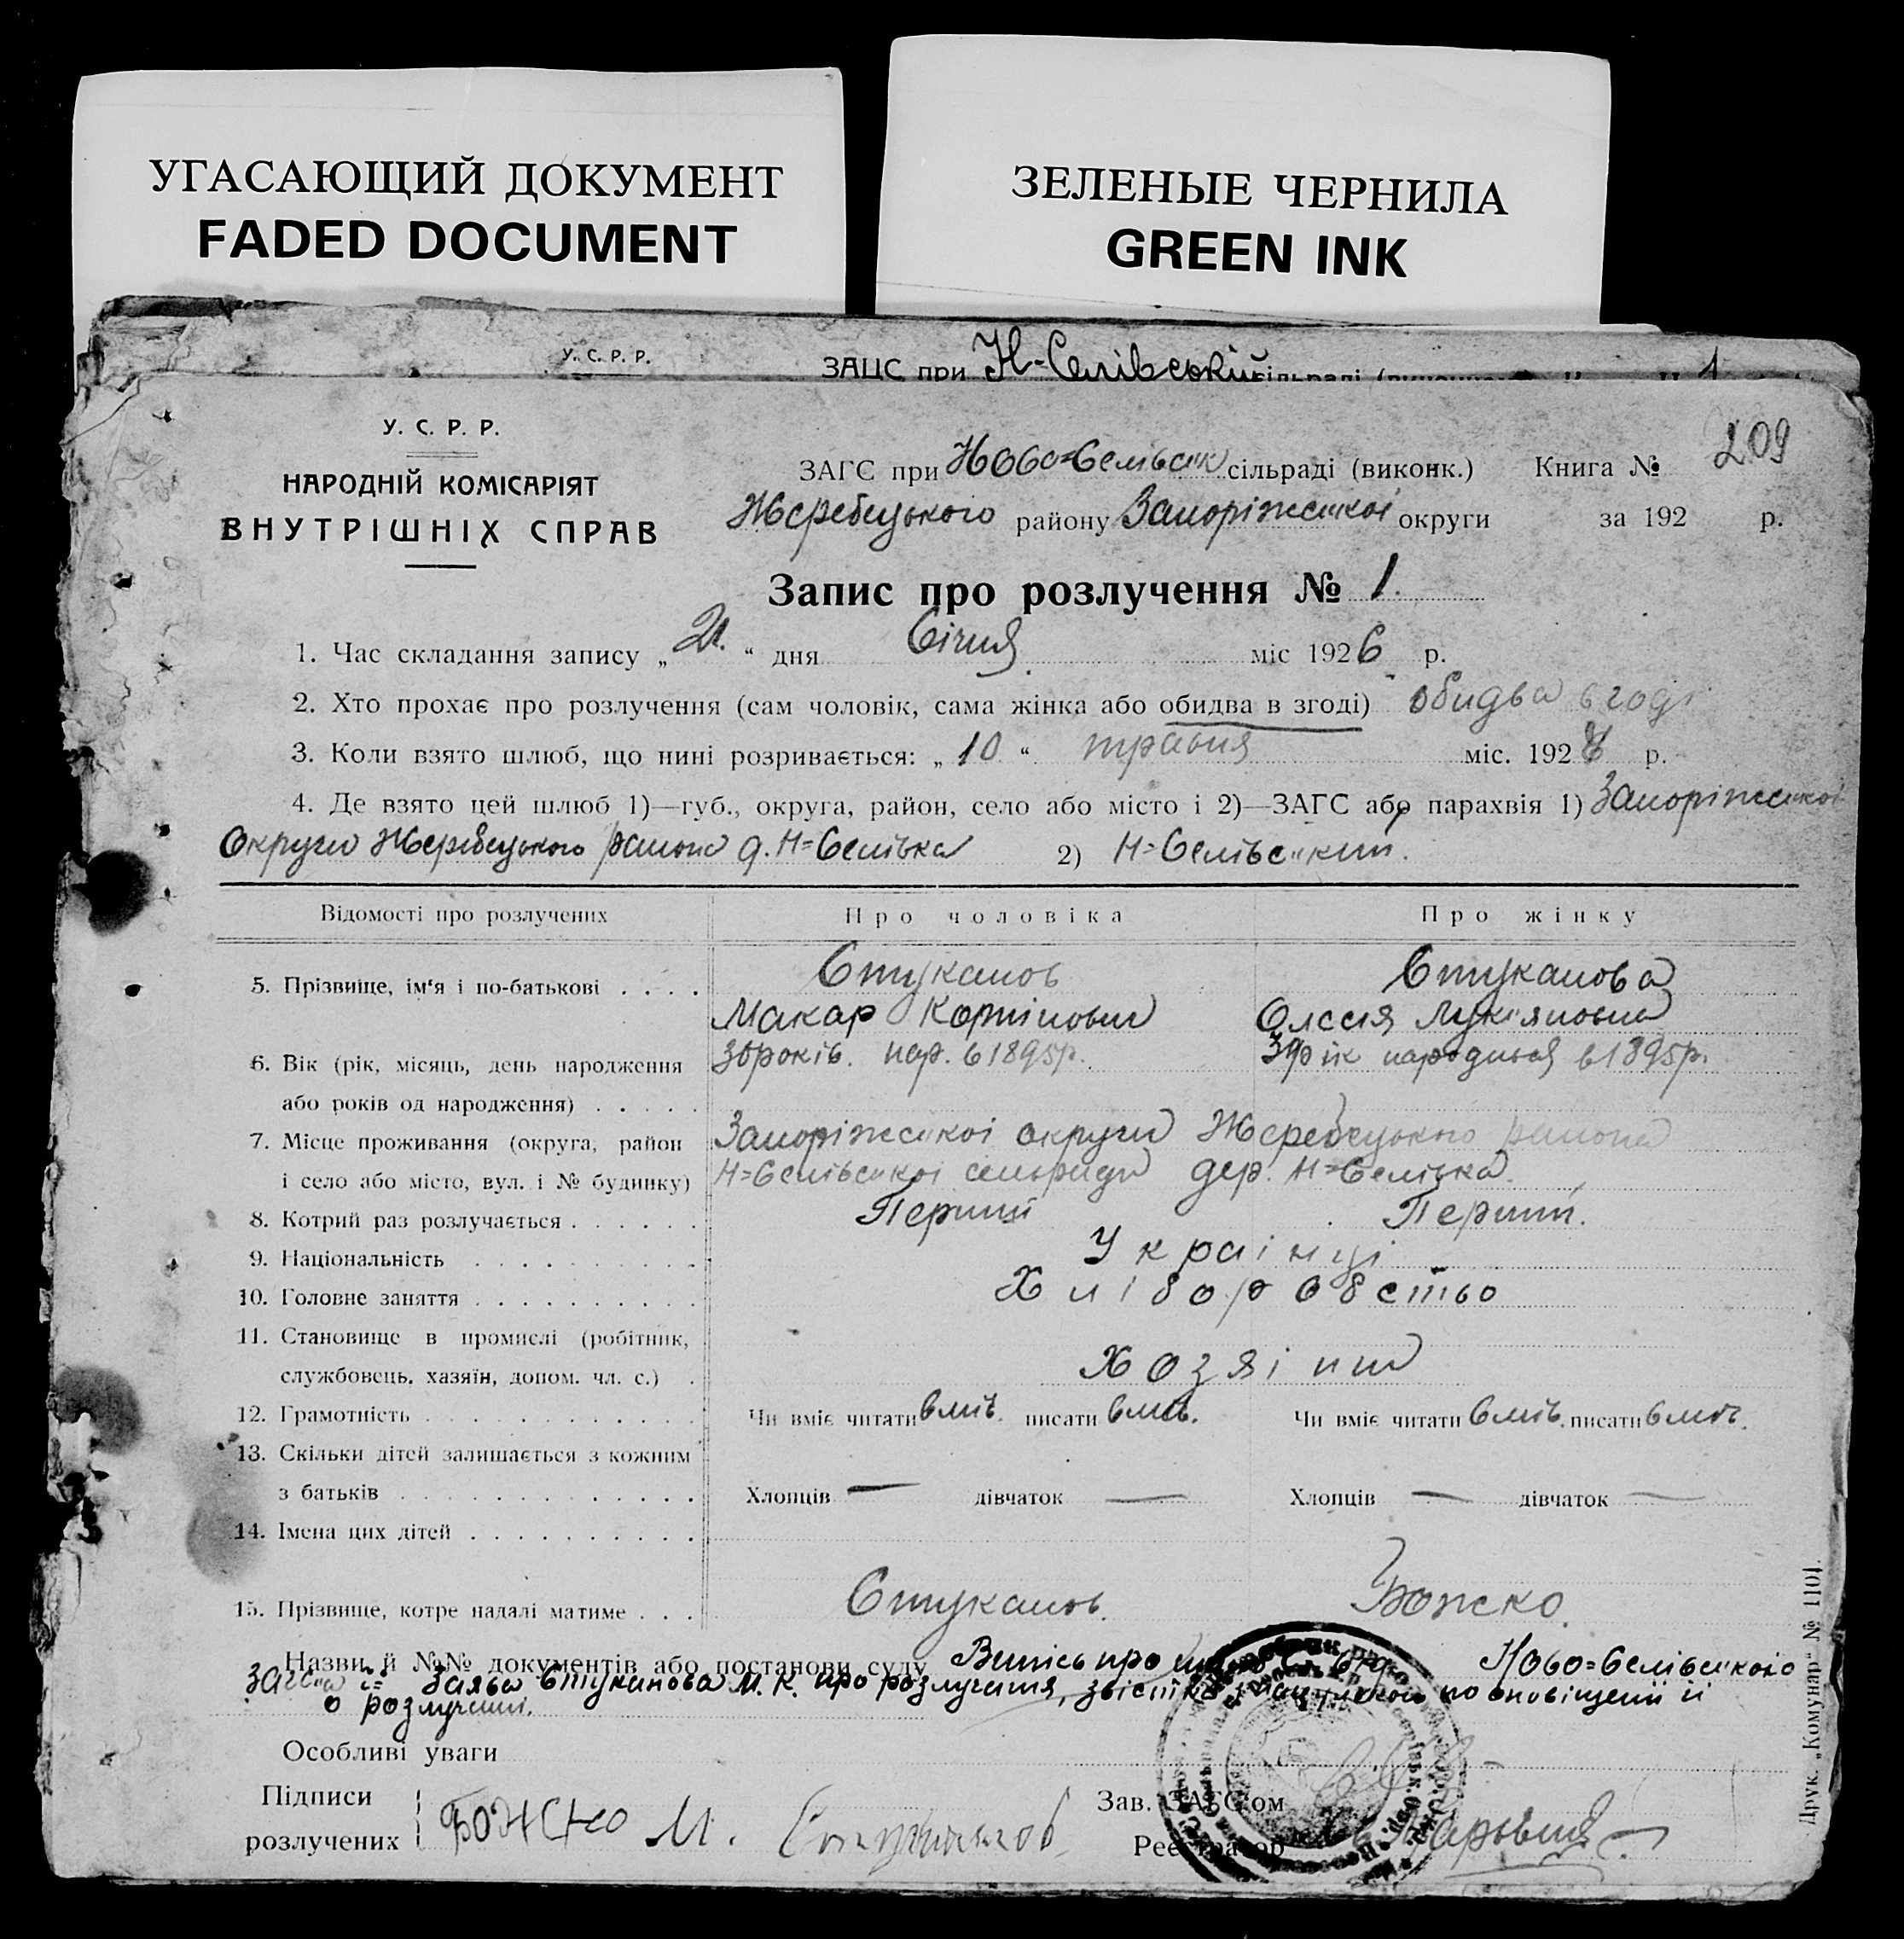 УГАСАЮЩИЙ ДОКУМЕНТ
FADED DOCUMENT
ЗЕЛЕНЫЕ ЧЕРНИЛА
GREEN INK
У. С. Р. Р.
ЗАЦС при Н-Селівській сільраді 1
У. С. Р. Р.
НАРОДНІЙ КОМІСАРІЯТ
ВНУТРІШНІХ СПРАВ
ЗАГС при Ново=Селівськ сільраді (виконк.) Книга № 209
Жеребецького району Запоріжської округи за 192 р.
Запис про розлучення № 1.
1. Час складання запису „21.“ дня Січня міс 1926 р.
2. Хто прохає про розлучення (сам чоловік, сама жінка або обидва в згоді) обидва в годі
3. Коли взято шлюб, що нині розривається: „10“ травня міс. 192 р.
4. Де взято цей шлюб 1)—губ., округа, район, село або місто і 2)—ЗАГС або парахвія 1) Запоріжської
Округи Жеребецького района д. Н=Селівка 2) Н=Селівський.
Відомості про розлучених Про чоловіка Про жінку
5. Прізвище, ім'я і по-батькові . . . . Стуканов Стуканова
Макар Корнінович Олєся Лук'яновна
6. Вік (рік, місяць, день народження 30років. нар. в 1895р. рік народився в 1895р.
або років од народження) . . . . .
7. Місце проживання (округа, район Запоріжської округи Жеребецького района
і село або місто, вул. і № будинку) Н=Селівської сельради дер. Н=Селівка.
8. Котрий раз розлучається . . . . . . Перший Перший.
9. Національність . . . . . . . . . . Українці
10. Головне заняття . . . . . . . . . . Хліборобство
11. Становище в промислі (робітник,
службовець, хазяїн, допом. чл. с.) . Хозяіни
12. Грамотність . . . . . . . . . . . . Чи вміє читати вміє. писати вміє. Чи вміє читати вміє. писати вміє.
13. Скільки дітей залишається з кожним
з батьків . . . . . . . . . . . . . Хлопців — дівчаток — Хлопців — дівчаток —
14. Імена цих дітей . . . . . . . . . .
15. Прізвище, котре надалі матиме . . . Стуканов. Божко.
Назви й №№ документів або постанови суду Витісь про Ново=Селівського
ЗАГС'а Заява Стуканова М. К. про розлучення, по оповіщенні її
о розлученні.
Особливі уваги
Підписи Зав. ЗАГС'ом
розлучених Божко М. Стуканов Реєстратор
Друк. „Комунар“ № 1101.